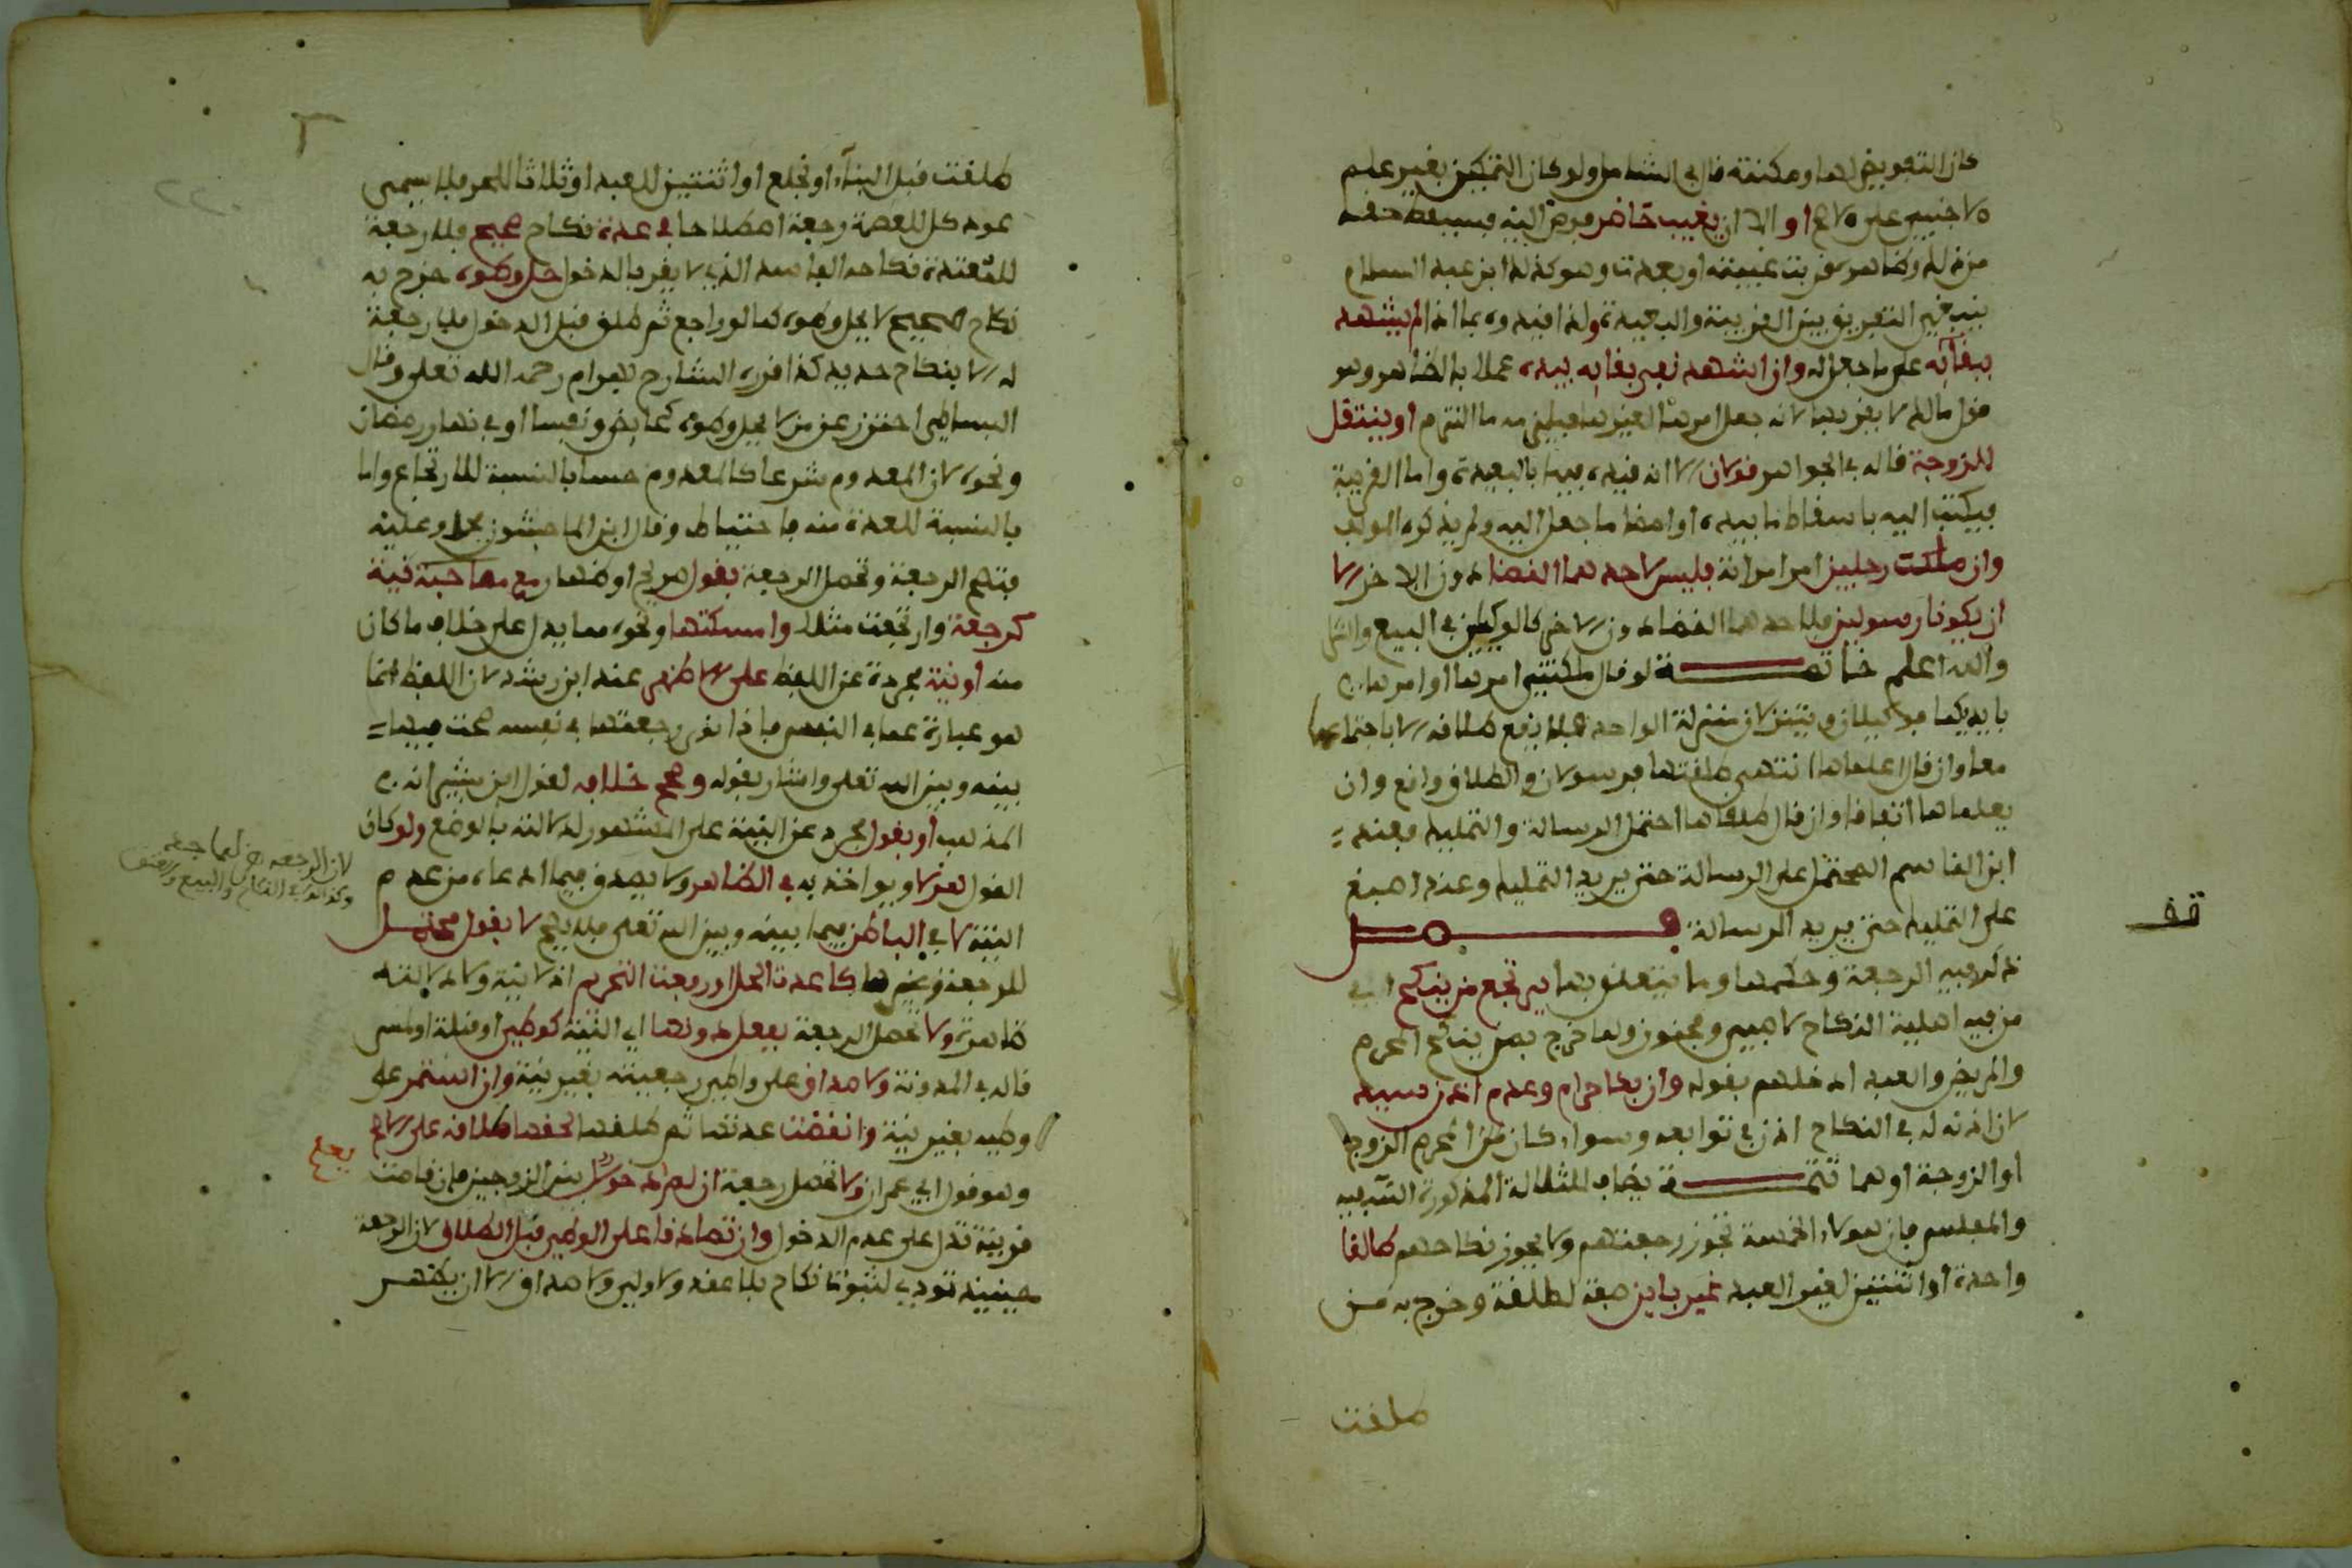 كان التفويض لها ومكنته قال في الشامل ولو كان التمكين بغير علم
الاجنبي على الاصح او الا ان يغيب حاضر فوض اليه فيسقط حقه
من ذلك وظاهره قربت غيبته او بعدت وهو كذلك ابن عبد السلام
ينبغي التفريق بين القريبة والبعيدة ولذا قيده بما اذا لم يشهد
ببقائه على ما جعل له وان اشهد ففي بقائه بيده عملا بالظاهر وهو
قول مالك لا يقربها لانه جعل امرها لغيرها فيلزمه ما التزم او ينتقل
للزوجة قاله في الجواهر قولان الا انه قيده فيها بالبعيدة واما القريبة
فيكتب اليه باسقاط ما بيده او امضا ما جعل اليه ولم يذكره المولف
وان ملكت رجلين امر امراته فليس لاحدهما القضا دون الاخر الا
ان يكونا رسولين فلاحدهما القضا دون الاخر كالوكيلين في البيع والشرا
والله اعلم خاتمة لو قال ملكتكما امرها او امرها
بايديكما فوكيلان وينزلان منزلة الواحد فلا يقع طلاقه الا باجتماعهما
معا وان قال اعلماها اني طلقتها فرسولان والطلاق واقع وان لم
يعلماها اتفاقا وان قال طلقاها احتمل الرسالة والتمليك فعند
ابن القاسم المحتمل على الرسالة حتى يريد التمليك وعند اصبغ
على التمليك حتى يريد الرسالة فصل
قف
ذكر فيه الرجعة وحكمها وما يتعلق بها يرتجع من ينكح اي
من فيه اهلية النكاح لا صبي ومجنون ولما خرج بمن ينكح المحرم
والمريض والعبد ادخلهم بقوله وان بكاحرام وعدم اذن سيد
لان اذنه له في النكاح اذن في توابعه وسواء كان من المحرم الزوج
او الزوجة او هما تتمة يضاف للثلاثة المذكورة السفيه
والمفلس فان هولاء الخمسة تجوز رجعتهم ولا يجوز نكاحهم طالقا
واحدة او اثنتين لغير العبد غير باين صفة لطلقة وخرج به من
طلقت
طلقت قبل البنآء او بخلع او اثنتين للعبد او ثلاثا للحر فلا يسمى
عود كل للعصمة رجعة اصطلاحا في عدة نكاح صحيح فلا رجعة
للمعتدة نكاحه الفاسد الذي لا يقر بالدخول حل وطوه خرج به
نكاح صحيح لا يحل وطوه كما لو راجع ثم طلق قبل الدخول فلا رجعة
له الا بنكاح جديد كذا قرره الشارح بهرام رحمه الله تعلى وقال
البساطي احترز عن من لا يحل وطوه كحايض ونفسا او في نهار رمضان
ونحوه لان المعدوم شرعا كالمعدوم حسا بالنسبة للارتجاع واما
بالنسبة للعدة منه فاحتياط وقال ابن الماجشون يحل وعليه
فتصح الرجعة وتحصل الرجعة بقول صريح اوضهار مع مصاحبة نية
كرجعت وارتجعت مثلا وامسكتها ونحوه مما يدل على خلاف ما كان
منه او بنية مجردة عن اللفظ على الاظهر عند ابن رشد لان اللفظ انما
هو عبارة عما في النفس فاذا نوى رجعتها في نفسه صحت فيما
بينه وبين الله تعلى واشار بقوله وصحح خلافه لقول ابن بشير انه
المذهب او بقول مجرد عن النية على المشهور لدلالته بالوضع ولو كان
القول هزلا ويواخذ به في الظاهر ولا يصدق فيما ادعاه من عدم
النية لا في الباطن فيما بينه وبين الله تعلى فلا يصح لا بقول محتمل
للرجعة وغيرها كاعدت الحل او رفعت التحريم اذ لا نية ولا دلالة
ظاهرة ولا تحصل الرجعة بفعل دونها اي النية كوطئ او قبلة او لمس
قاله في المدونة ولا صداق على واطئ رجعيته بغير نية وان استمر على
وطيه بغير نية وانقضت عدتها ثم طلقها لحقها طلاقه على الاصح
وهو قول ابي عمران ولا تحصل رجعة ان لم يعلم دخول بين الزوجين فان قامت
قرينة تدل على عدم الدخول وان تصادقا على الوطئ قبل الطلاق لان الرجعة
حينيذ تودي لثبوت نكاح بلا عقد ولا ولي ولا صداق الا ان يظهر